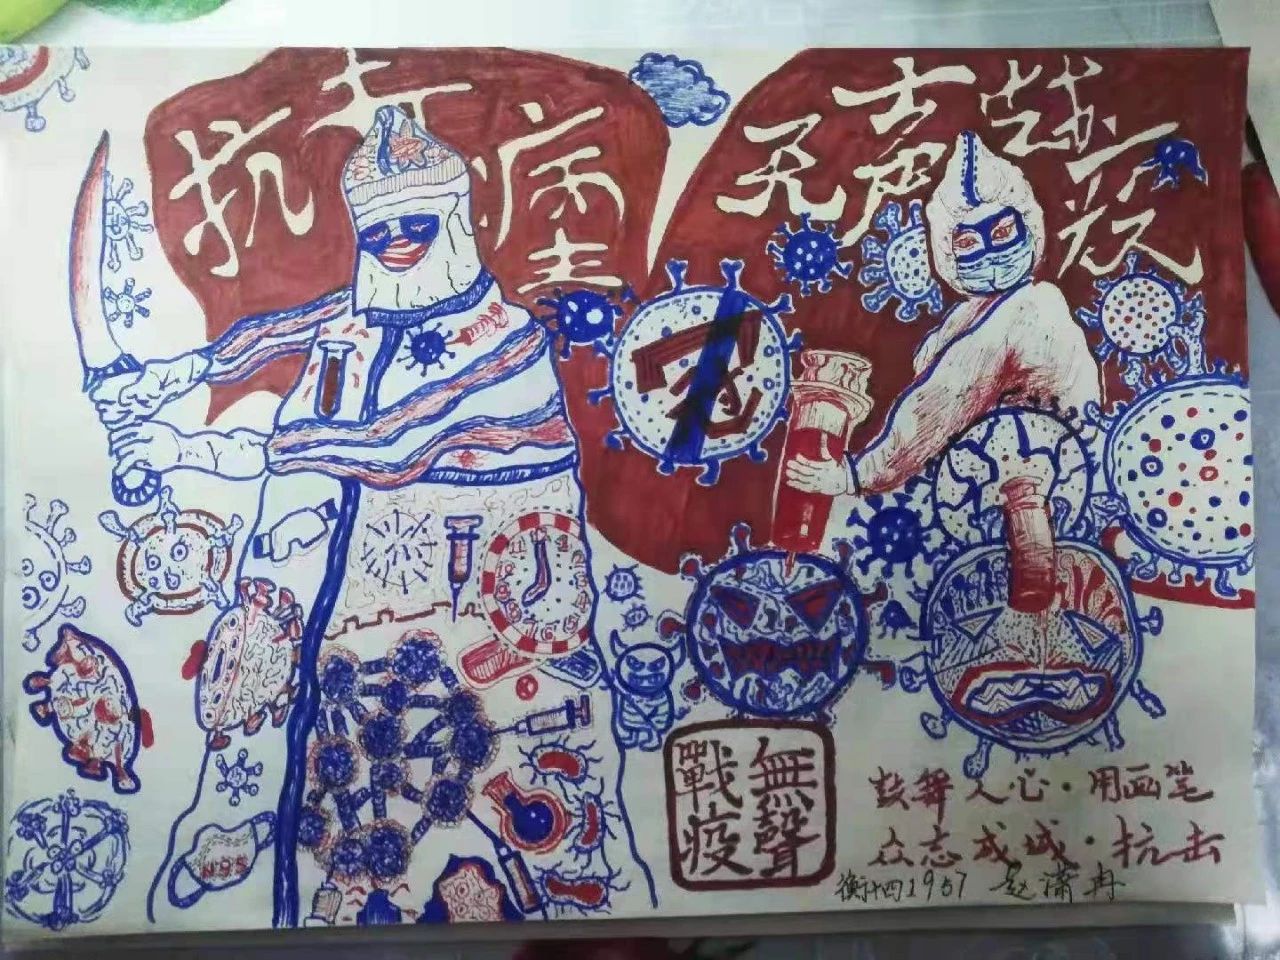 抗击病毒
无声战疫
冠
N95
無聲
戰疫
鼓舞人心·用画笔
众志成城·抗击
衡十四1907 赵潇冉